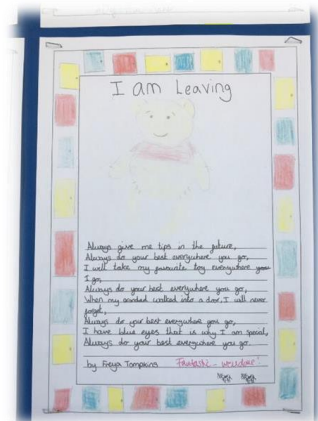 I am Leaving
Always give me tips in the future,
Always do your best everywhere you go,
I will take my favourite toy everywhere
I go,
Always do your best everywhere you go,
When my grandad walked into a door, I will never
forget,
Always do your best everywhere you go,
I have blue eyes that is why I am special,
Always do your best everywhere you go.
by Freya Tompkins
Fantastic - well done!